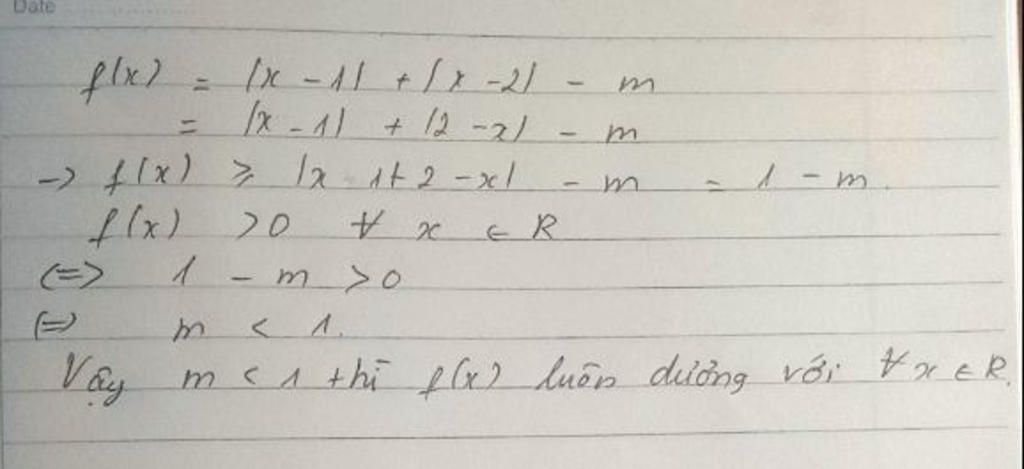 Date
f(x) = |x - 1| + |x - 2| - m
= |x - 1| + |2 - x| - m
-> f(x) ⩾ |x - 1 + 2 - x| - m = 1 - m.
f(x) > 0 ∀ x ∈ R
(=> 1 - m > 0
(=) m < 1.
Vậy m < 1 thì f(x) luôn dương với ∀x ∈ R.